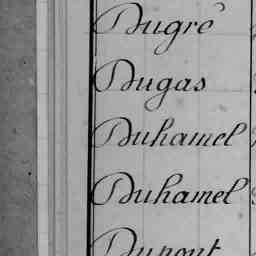 Dugré
Dugas
Duhamel
Duhamel
Dupont